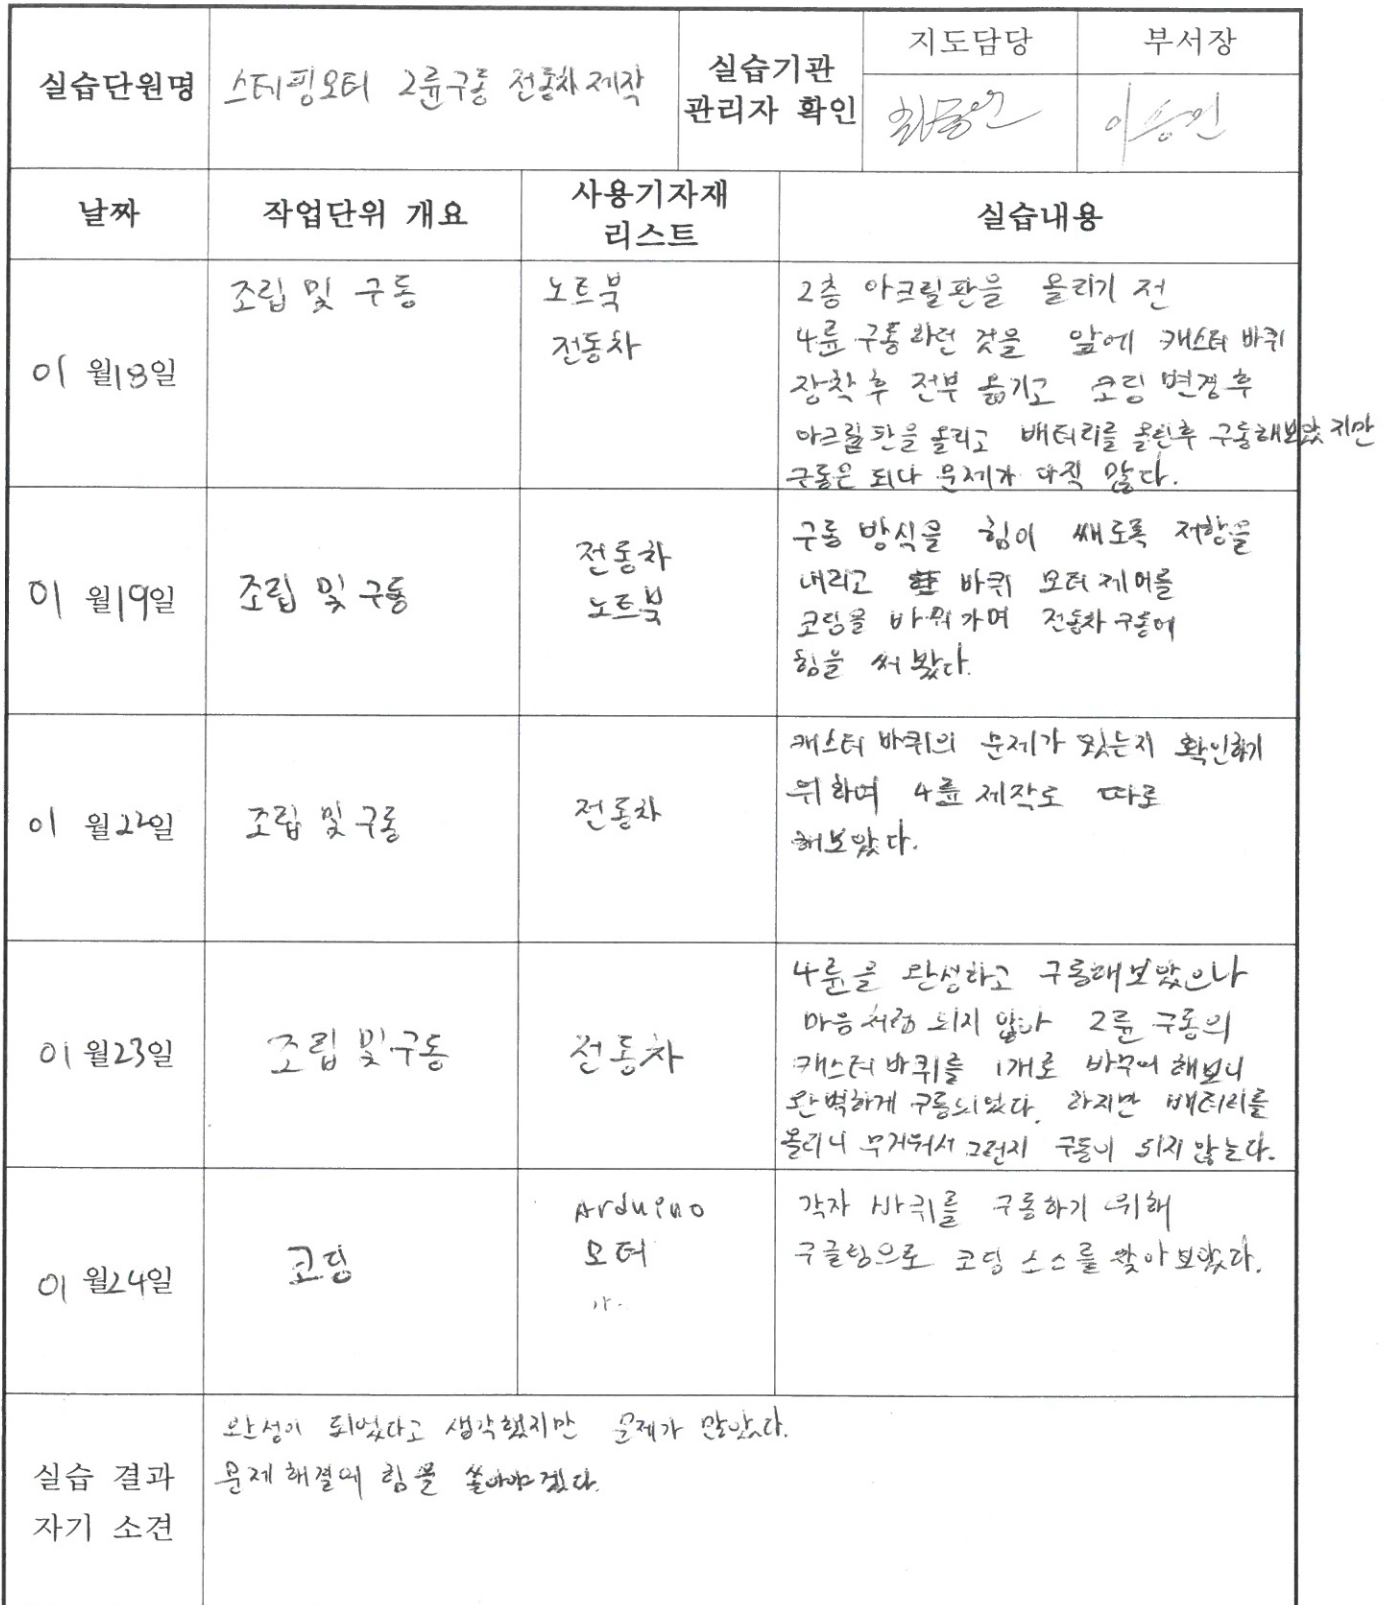 지도담당 부서장
실습단원명 스테핑모터 2륜구동 전동차 제작 실습기관
관리자 확인
이승민
날짜 작업단위 개요 사용기자재
리스트 실습내용
01월18일 조립 및 구동 노트북
전동차
2층 아크릴판을 올리기 전
4륜 구동하던 것을 앞에 캐스터 바퀴
장착 후 전부 옮기고 코딩 변경 후
아크릴판을 올리고 배터리를 올린후 구동해보았지만
구동은 되나 문제가 아직 많다.
01월19일 조립 및 구동 전동차
노트북
구동 방식을 힘이 쌔도록 저항을
내리고 바퀴 모터 제어를
코딩을 바꿔가며 전동차 구동에
힘을 써 봤다.
01월22일 조립 및 구동 전동차
캐스터 바퀴의 문제가 있는지 확인하기
위하여 4륜 제작도 따로
해보았다.
01월23일 조립 및 구동 전동차
4륜을 완성하고 구동해보았으나
마음처럼 되지 않아 2륜 구동의
캐스터 바퀴를 1개로 바꾸어 해보니
완벽하게 구동되었다. 하지만 배터리를
올리니 무거워서 그런지 구동이 되지 않는다.
01월24일 코딩 Arduino
모터
각자 바퀴를 구동하기 위해
구글링으로 코딩 소스를 찾아보았다.
실습 결과
자기 소견
완성이 되었다고 생각했지만 문제가 많았다.
문제 해결에 힘을 쏟아야겠다.